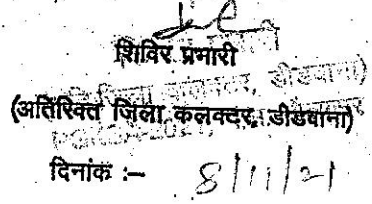 शिविर प्रभारी
(अतिरिक्त जिला कलक्टर, डीडवाना)
दिनांक :– 8/11/21